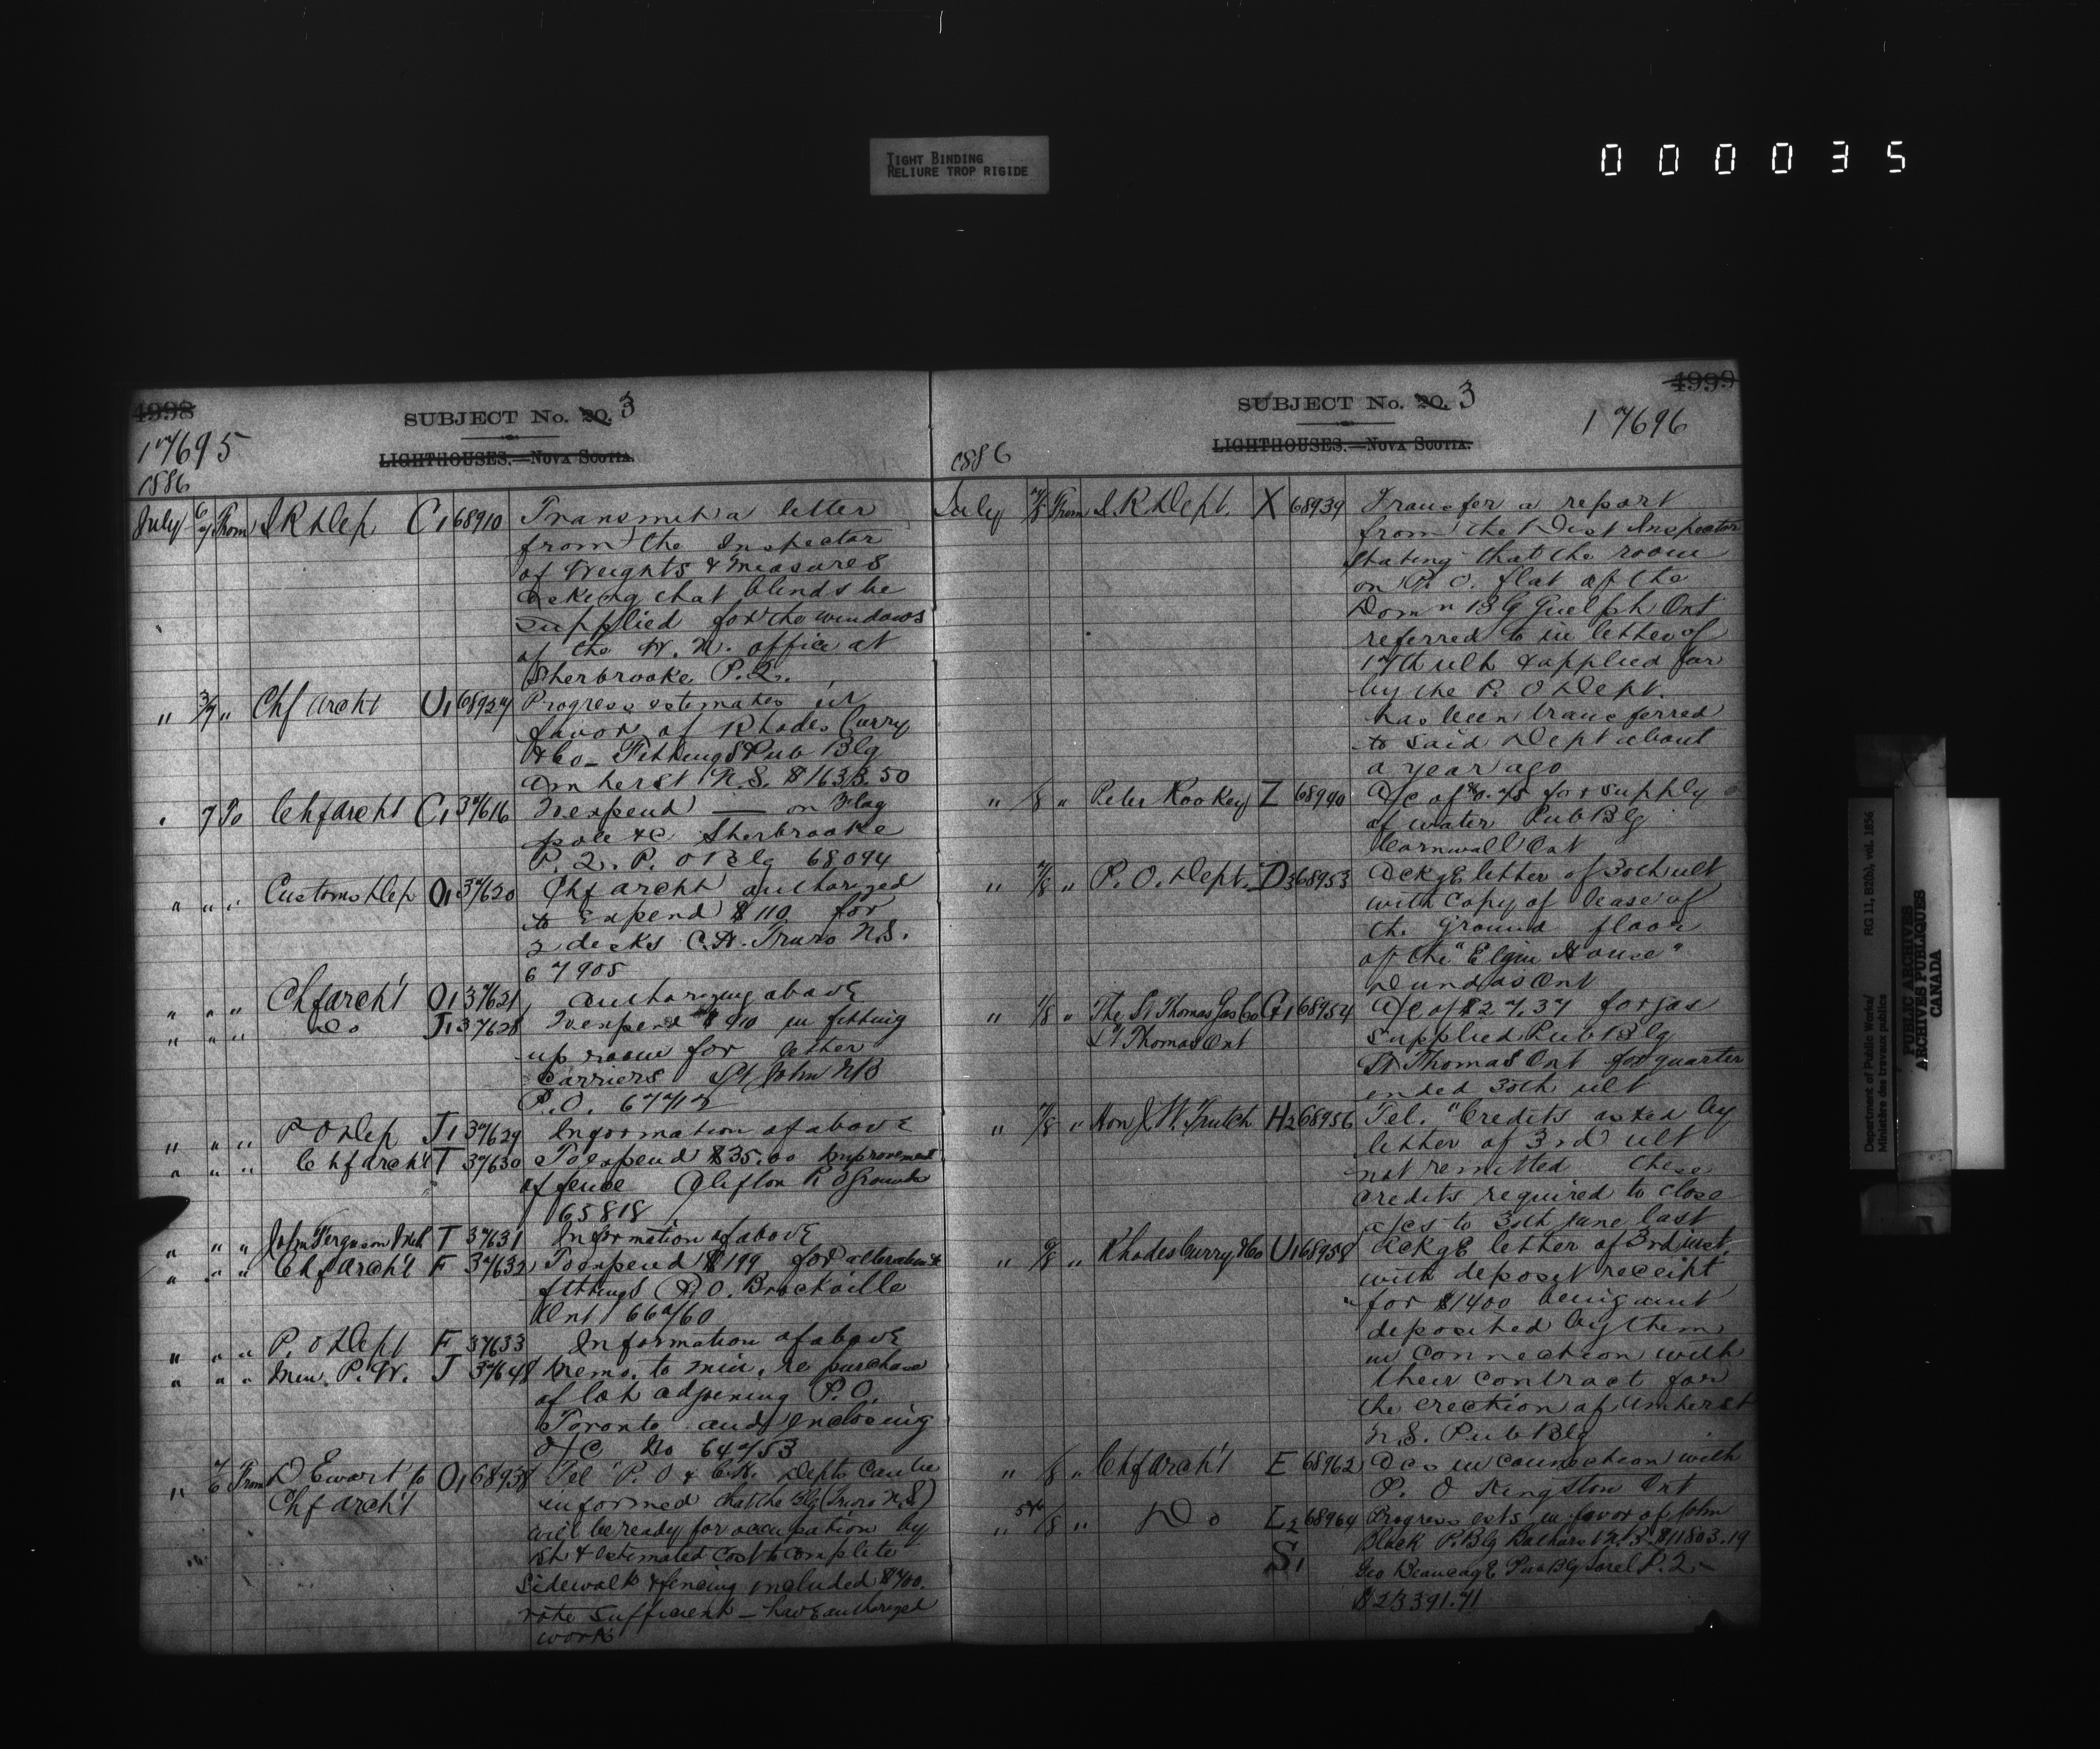 TIGHT BINDING
RELIURE TROP RIGIDE
000035
4998
SUBJECT No. 20. 3
17695
LIGHTHOUSES.—NOVA SCOTIA.
1886
July 6/7 From I R Dep C1 68910 Transmit a letter
from the Inspector
of Weights & Measures
asking that blinds be
supplied for the windows
of the W. M. office at
Sherbrooke P.Q.
" 3/7 " Chf Archt U1 68927 Progress estimates in
favor of Rhodes Curry
& Co – Fittings Pub Blg
Amherst N.S. $1633.50
" 7 To Chf Archt C1 37616 To expend — on Flag
pole &c Sherbrooke
P.Q. P.O Blg 68094
" " " Customs Dep O1 37620 Chf Archt authorized
to Expend $110 for
2 desks C.H. Truro N.S.
67905
" " " Chf Arch't O1 37621 Authorizing above
" " " Do J1 37628 To expend $410 in fitting
up room for letter
carriers St John NB
P.O. 67712
" " " P O Dep J1 37629 Information of above
" " " Chf Arch't T 37630 To expend $35.00 Improvement
of fence Clifton P O Grounds
65818
" " " John Ferguson T 37631 Information of above
" " " Chf Arch't F 37632 To expend $199 for alterations &
fittings P.O. Brockville
Ont 66760
" " " P. O Dept F 37633 Information of above
" " " Min. P.W. J 37648 Memo. to Min. re purchase
of lot adjoining P.O.
Toronto and enclosing
O/C No 64753
" 7/6 From D Ewart to O1 68938 Tel "P.O & C.H. Depts can be
Chf Arch't informed that the Blg (Truro N.S)
will be ready for occupation by
& estimated cost to complete
sidewalk & fencing included $700.
vote sufficient — have authorized
work
4999
SUBJECT No. 20. 3
17696
LIGHTHOUSES.—NOVA SCOTIA.
1886
July 7/8 From I R Dept. X 68939 Transfer a report
from the Dist Inspector
stating that the room
on P.O. flat of the
Domn B G Guelph Ont
referred to in letter of
17th ult & applied for
by the P. O Dept.
has been transferred
to said Dept about
a year ago
" /8 " Peter Kookey Z 68940 A/c of $0.75 for supply
of water Pub Blg
Cornwall Ont
" 7/8 " P. O. Dept. D3 68953 Ackge letter of 30th ult
with Copy of lease of
the Ground floor
of the "Elgin House"
Dundas Ont
" 7/8 " The St Thomas Gas Co G1 68954 A/c of $27.37 for gas
St Thomas Ont supplied Pub Blg
St Thomas Ont for quarter
ended 30th ult
" 7/8 " Hon J. W. Trutch H2 68956 Tel. "Credits asked by
letter of 3rd ult
not remitted these
credits required to close
a/cs to 30th June last
" 6/8 " Rhodes Curry & Co U1 68958 Ackge letter of 3rd inst.
with deposit receipt
for $1400 being amt
deposited by them
in connection with
their contract for
the erection of Amherst
N.S. Pub Blg
" /8 " Chf Arch't E 68962 Acs in connection with
P. O Kingston Ont
" 5th/8 " Do L2 68964 Progress ests in favor of John
S1 Black P. Blg Bathurst N.B. $11803.19
Geo Beaucage Pub Blg Sorel P.Q.–
$23391.41
Department of Public Works/ RG 11, B2(b), vol. 1856
Ministère des travaux publics
PUBLIC ARCHIVES
ARCHIVES PUBLIQUES
CANADA